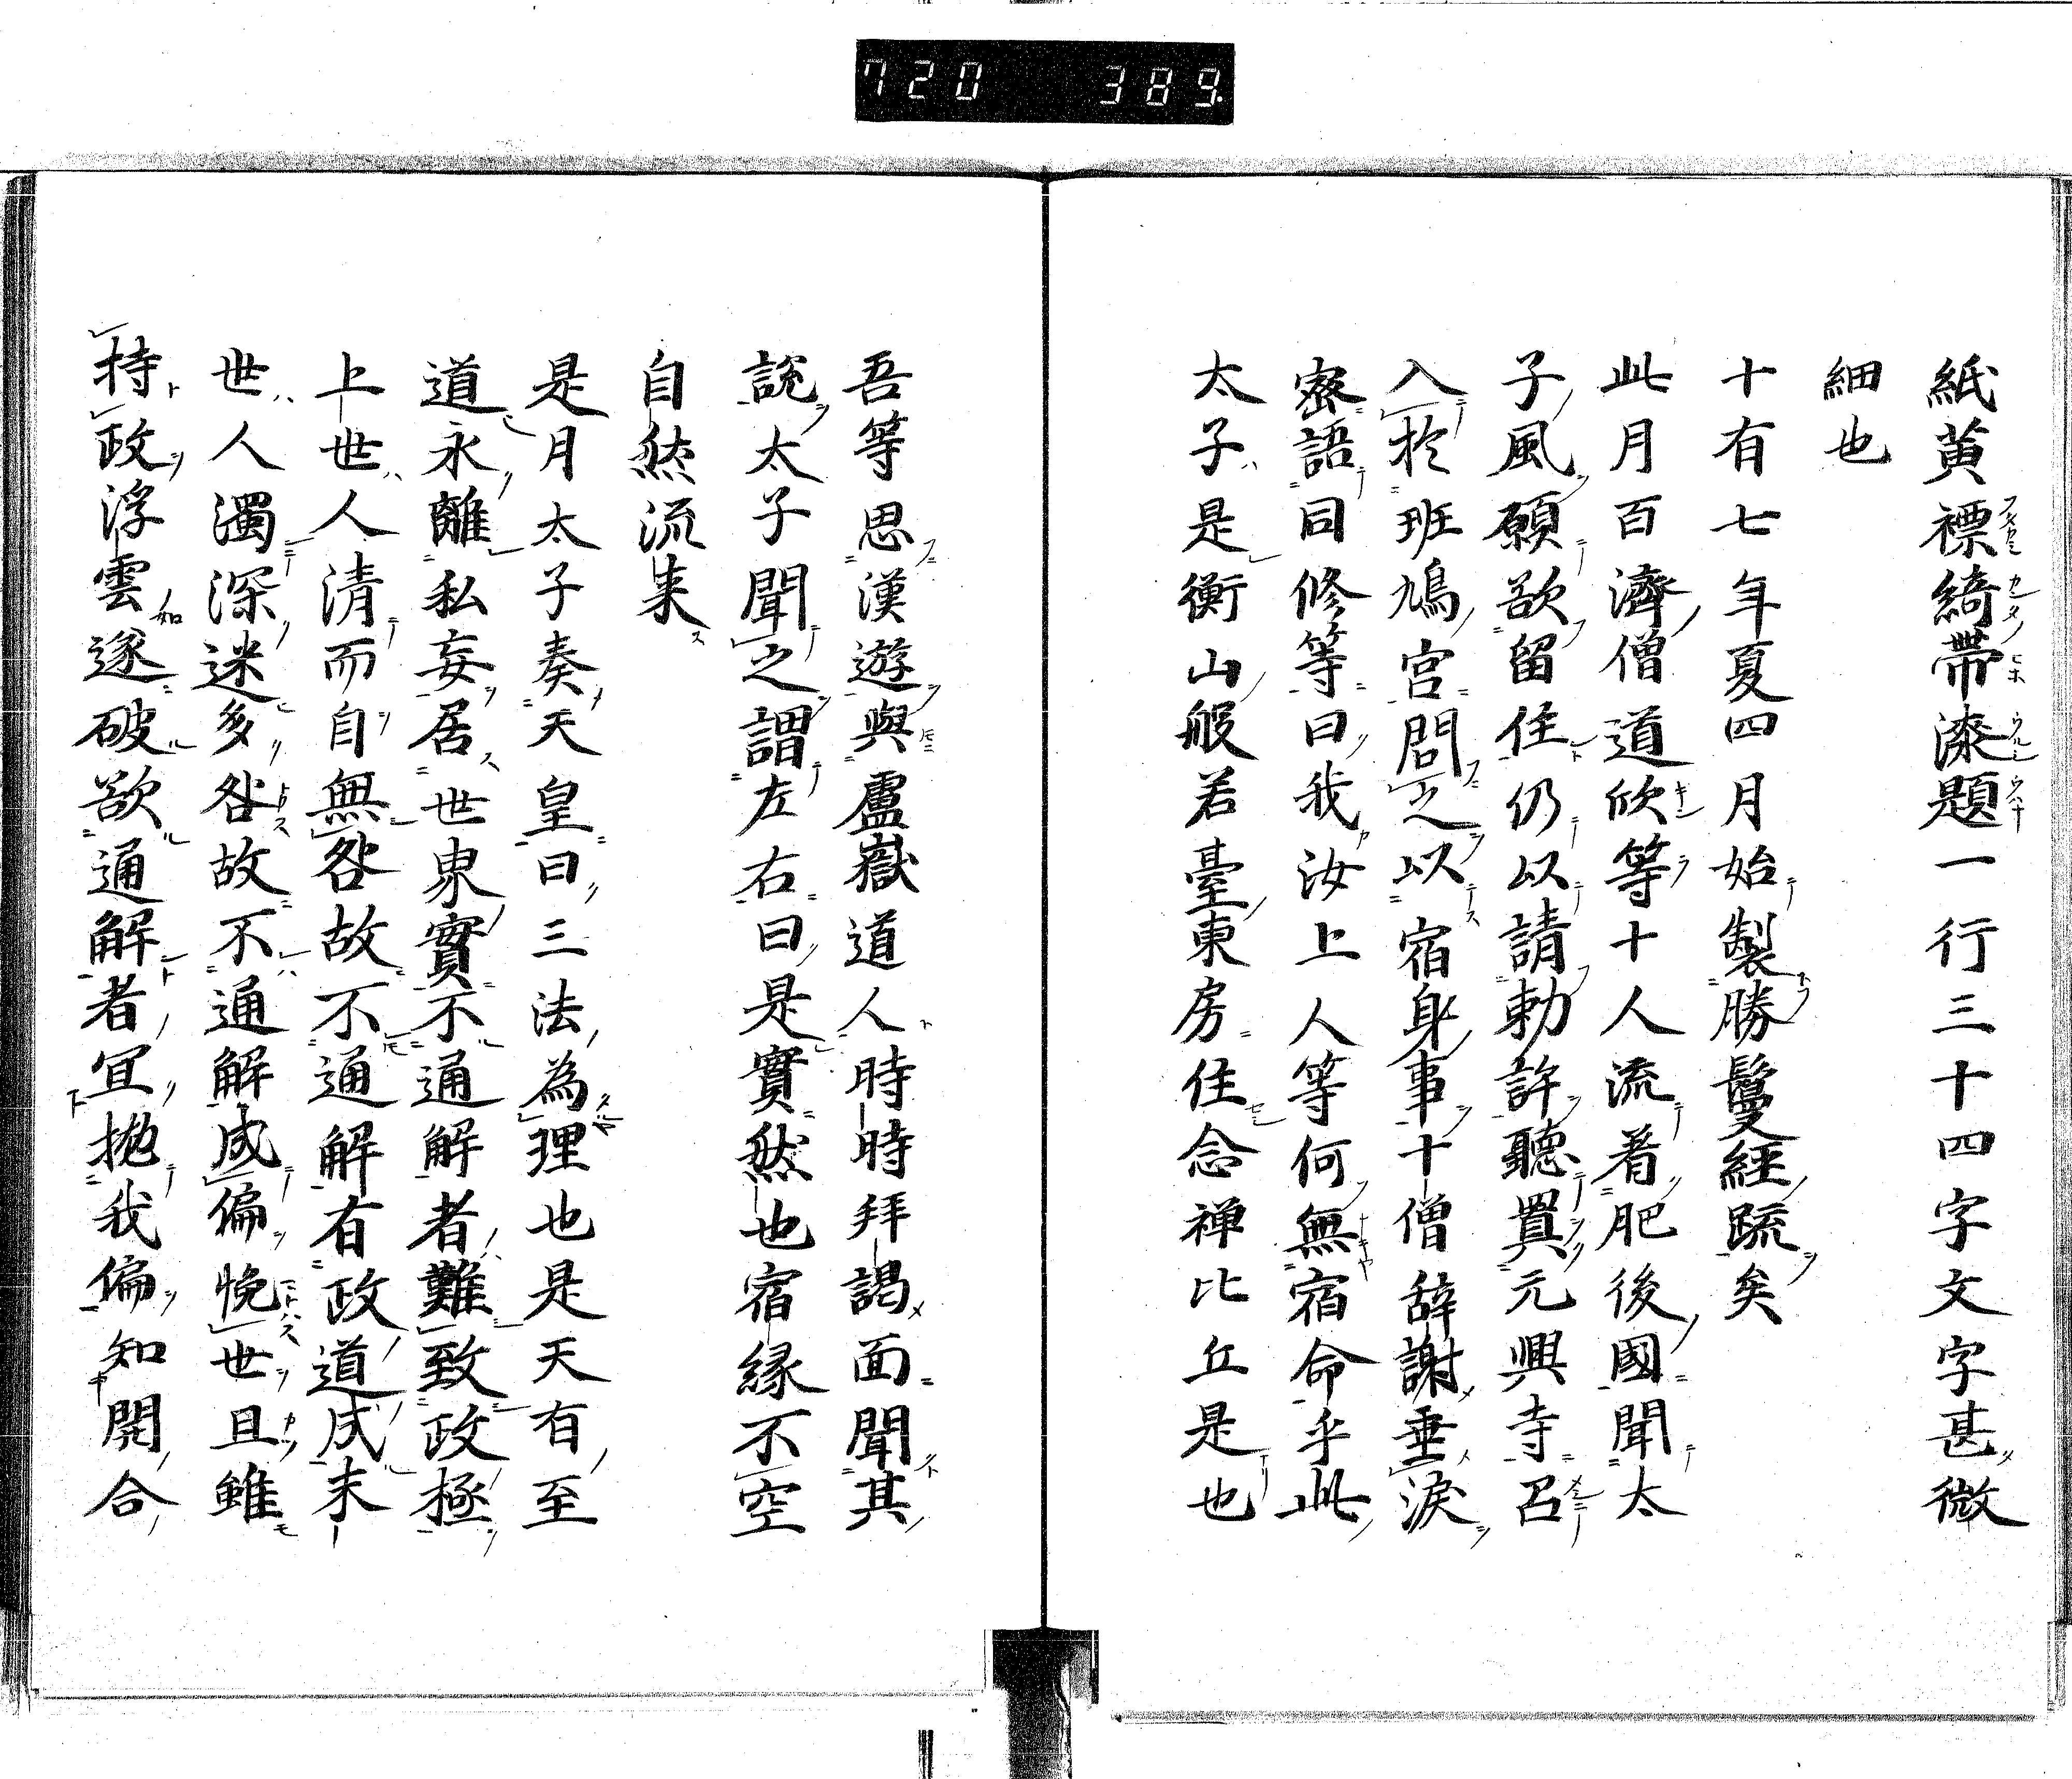 720 389.
紙黄褾綺帶漆題一行三十四字文字甚微
細也
十有七年夏四月始製勝鬘經䟽矣
此月百濟僧道欣等十人流着肥後國聞太
子風願欲留住仍以請勅許聽置元興寺召
入於班鳩宮問之以宿身事十僧辞謝垂淚
密語同修等曰我汝上人等何無宿命乎此
太子是衡山般若臺東房住念禅比丘是也
吾等思漢遊與盧嶽道人時時拜謁面聞其
說太子聞之謂左右曰是實然也宿緣不空
自然流来
是月太子奏天皇曰三法為理也是天有至
道永離私妄居世衆實不通解者難致政極
上世人清而自無咎故不通解有政道成末
世人濁深迷多咎故不通解成偏悗世且雖
持政浮雲逐破欲通解者冝拋我偏知開合